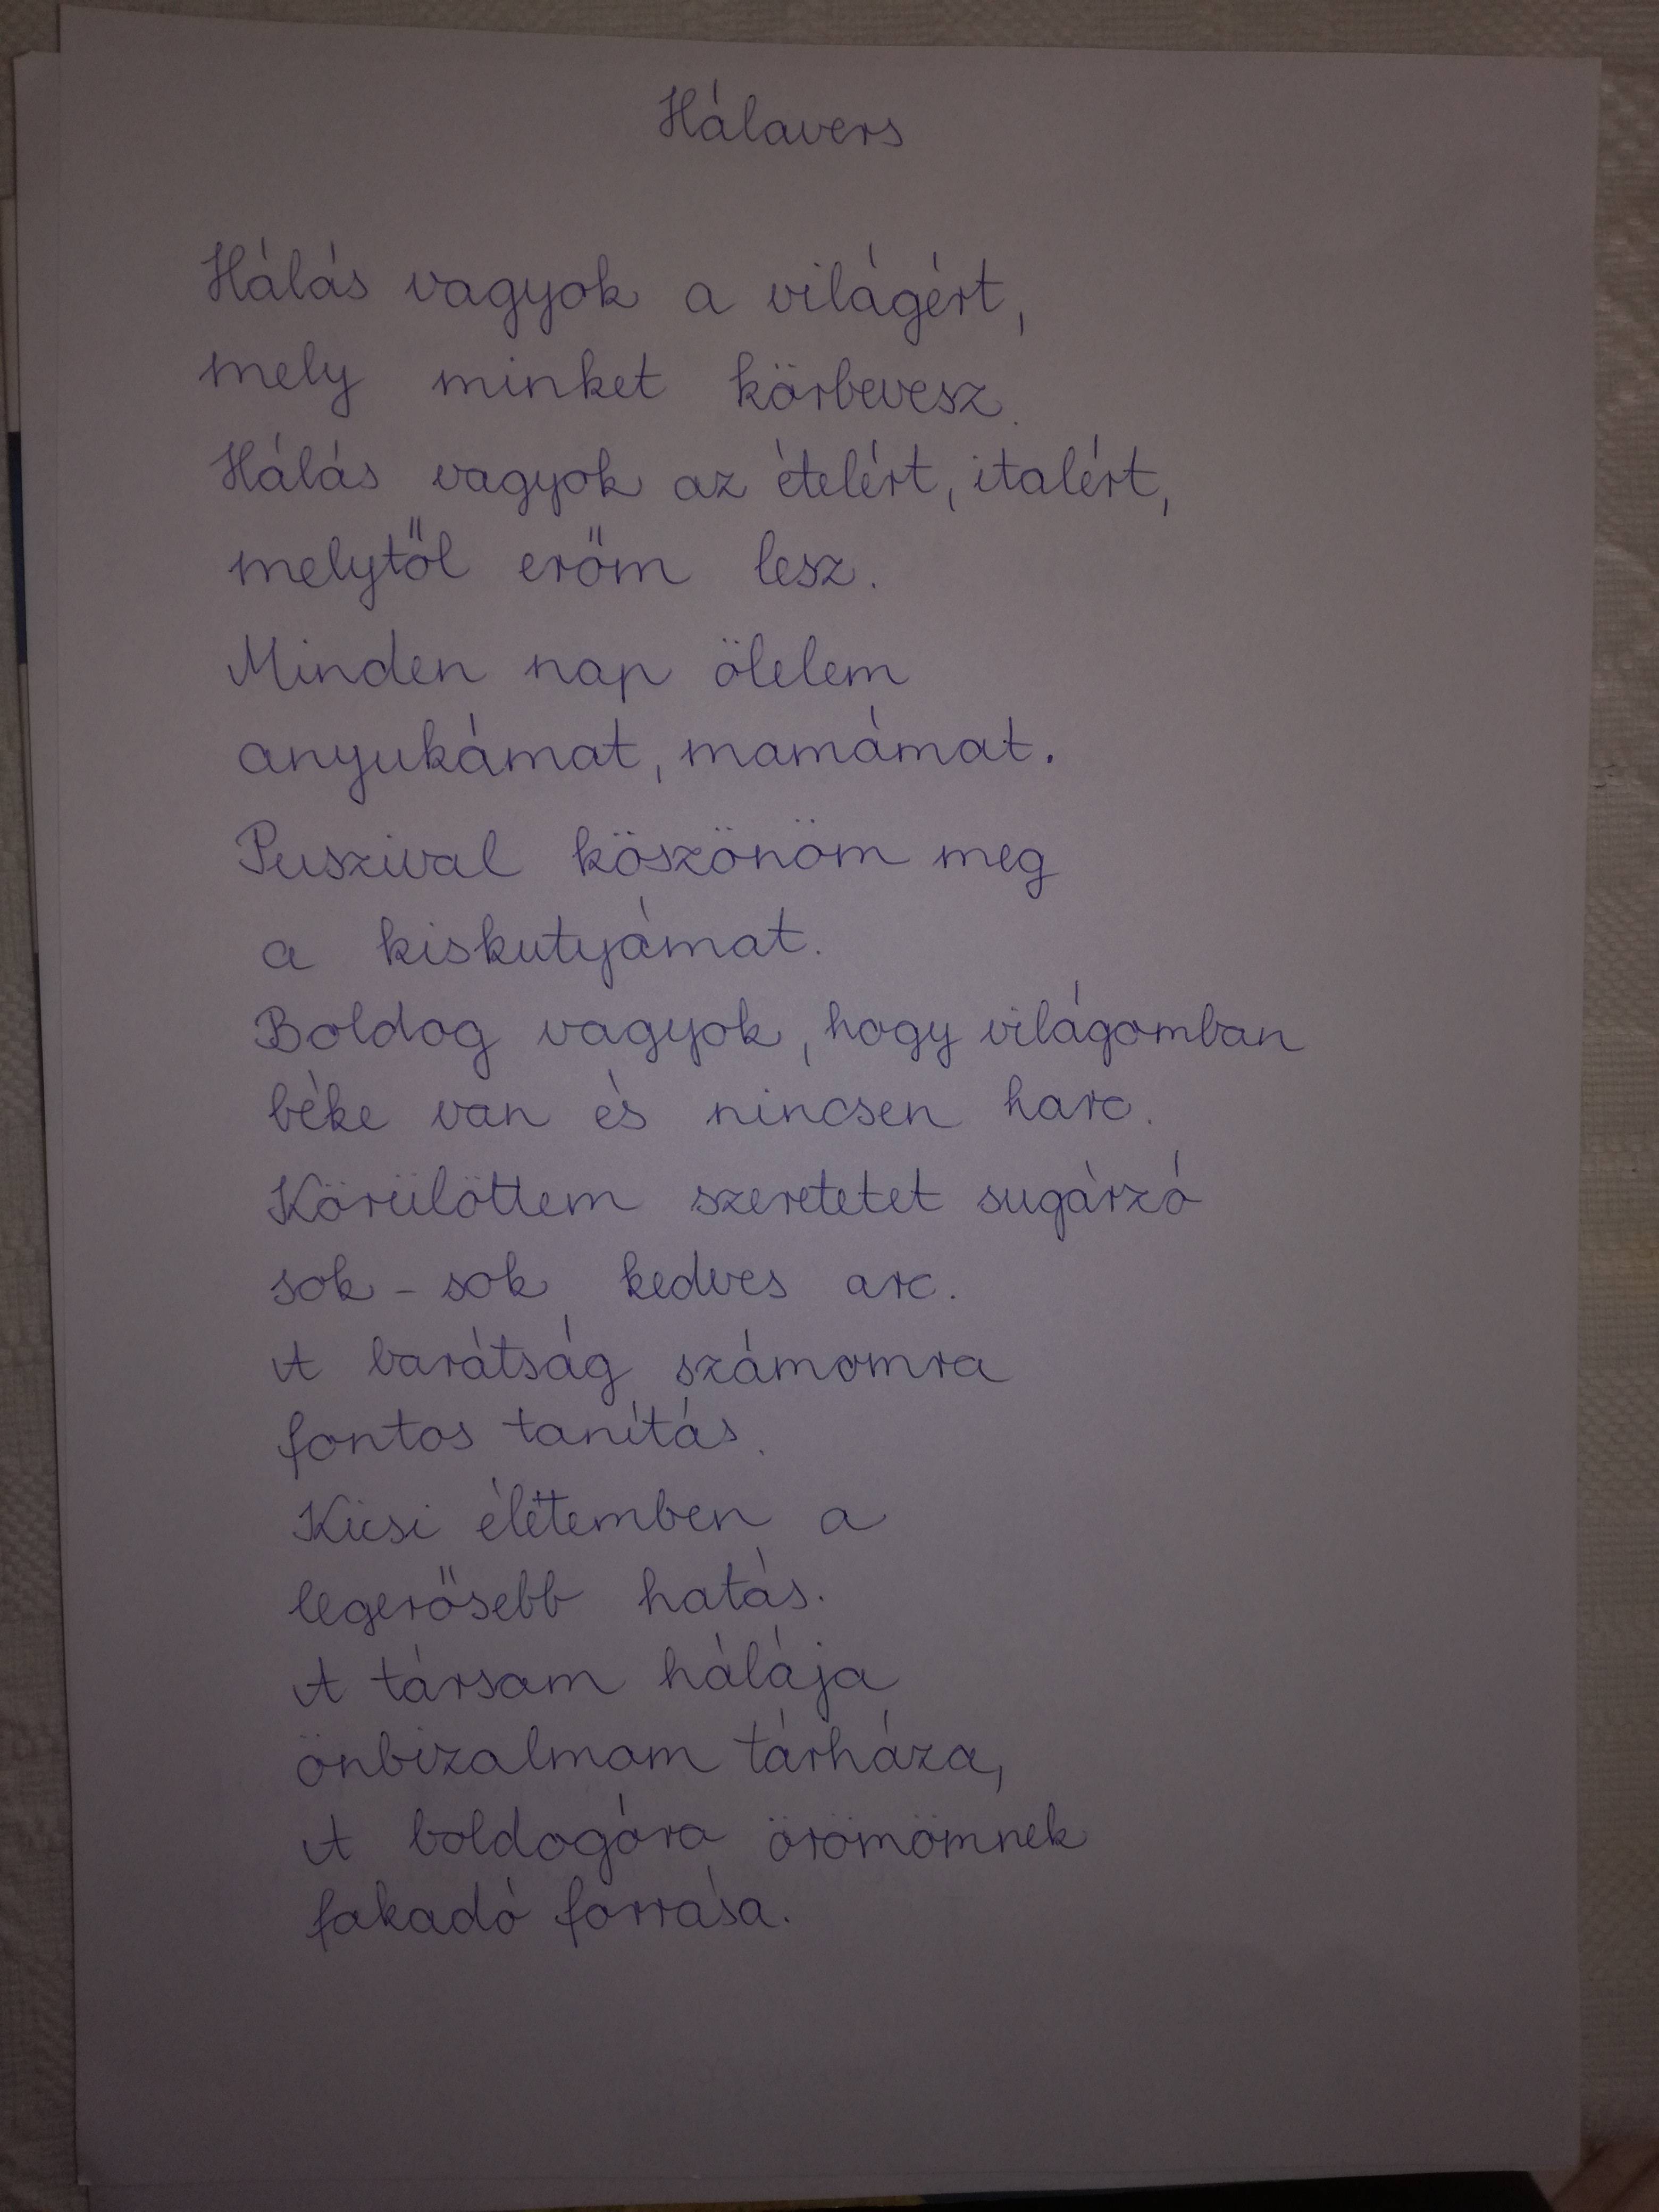 Hálavers
Hálás vagyok a világért,
mely minket körbevesz.
Hálás vagyok az ételért, italért,
melytől erőm lesz.
Minden nap ölelem
anyukámat, mamámat.
Puszival köszönöm meg
a kiskutyámat.
Boldog vagyok, hogy világomban
béke van és nincsen harc.
Körülöttem szeretetet sugárzó
sok-sok kedves arc.
A barátság számomra
fontos tanítás.
Kicsi életemben a
legerősebb hatás.
A társam hálája
önbizalmam tárháza,
A boldogóra örömömnek
fakadó forrása.